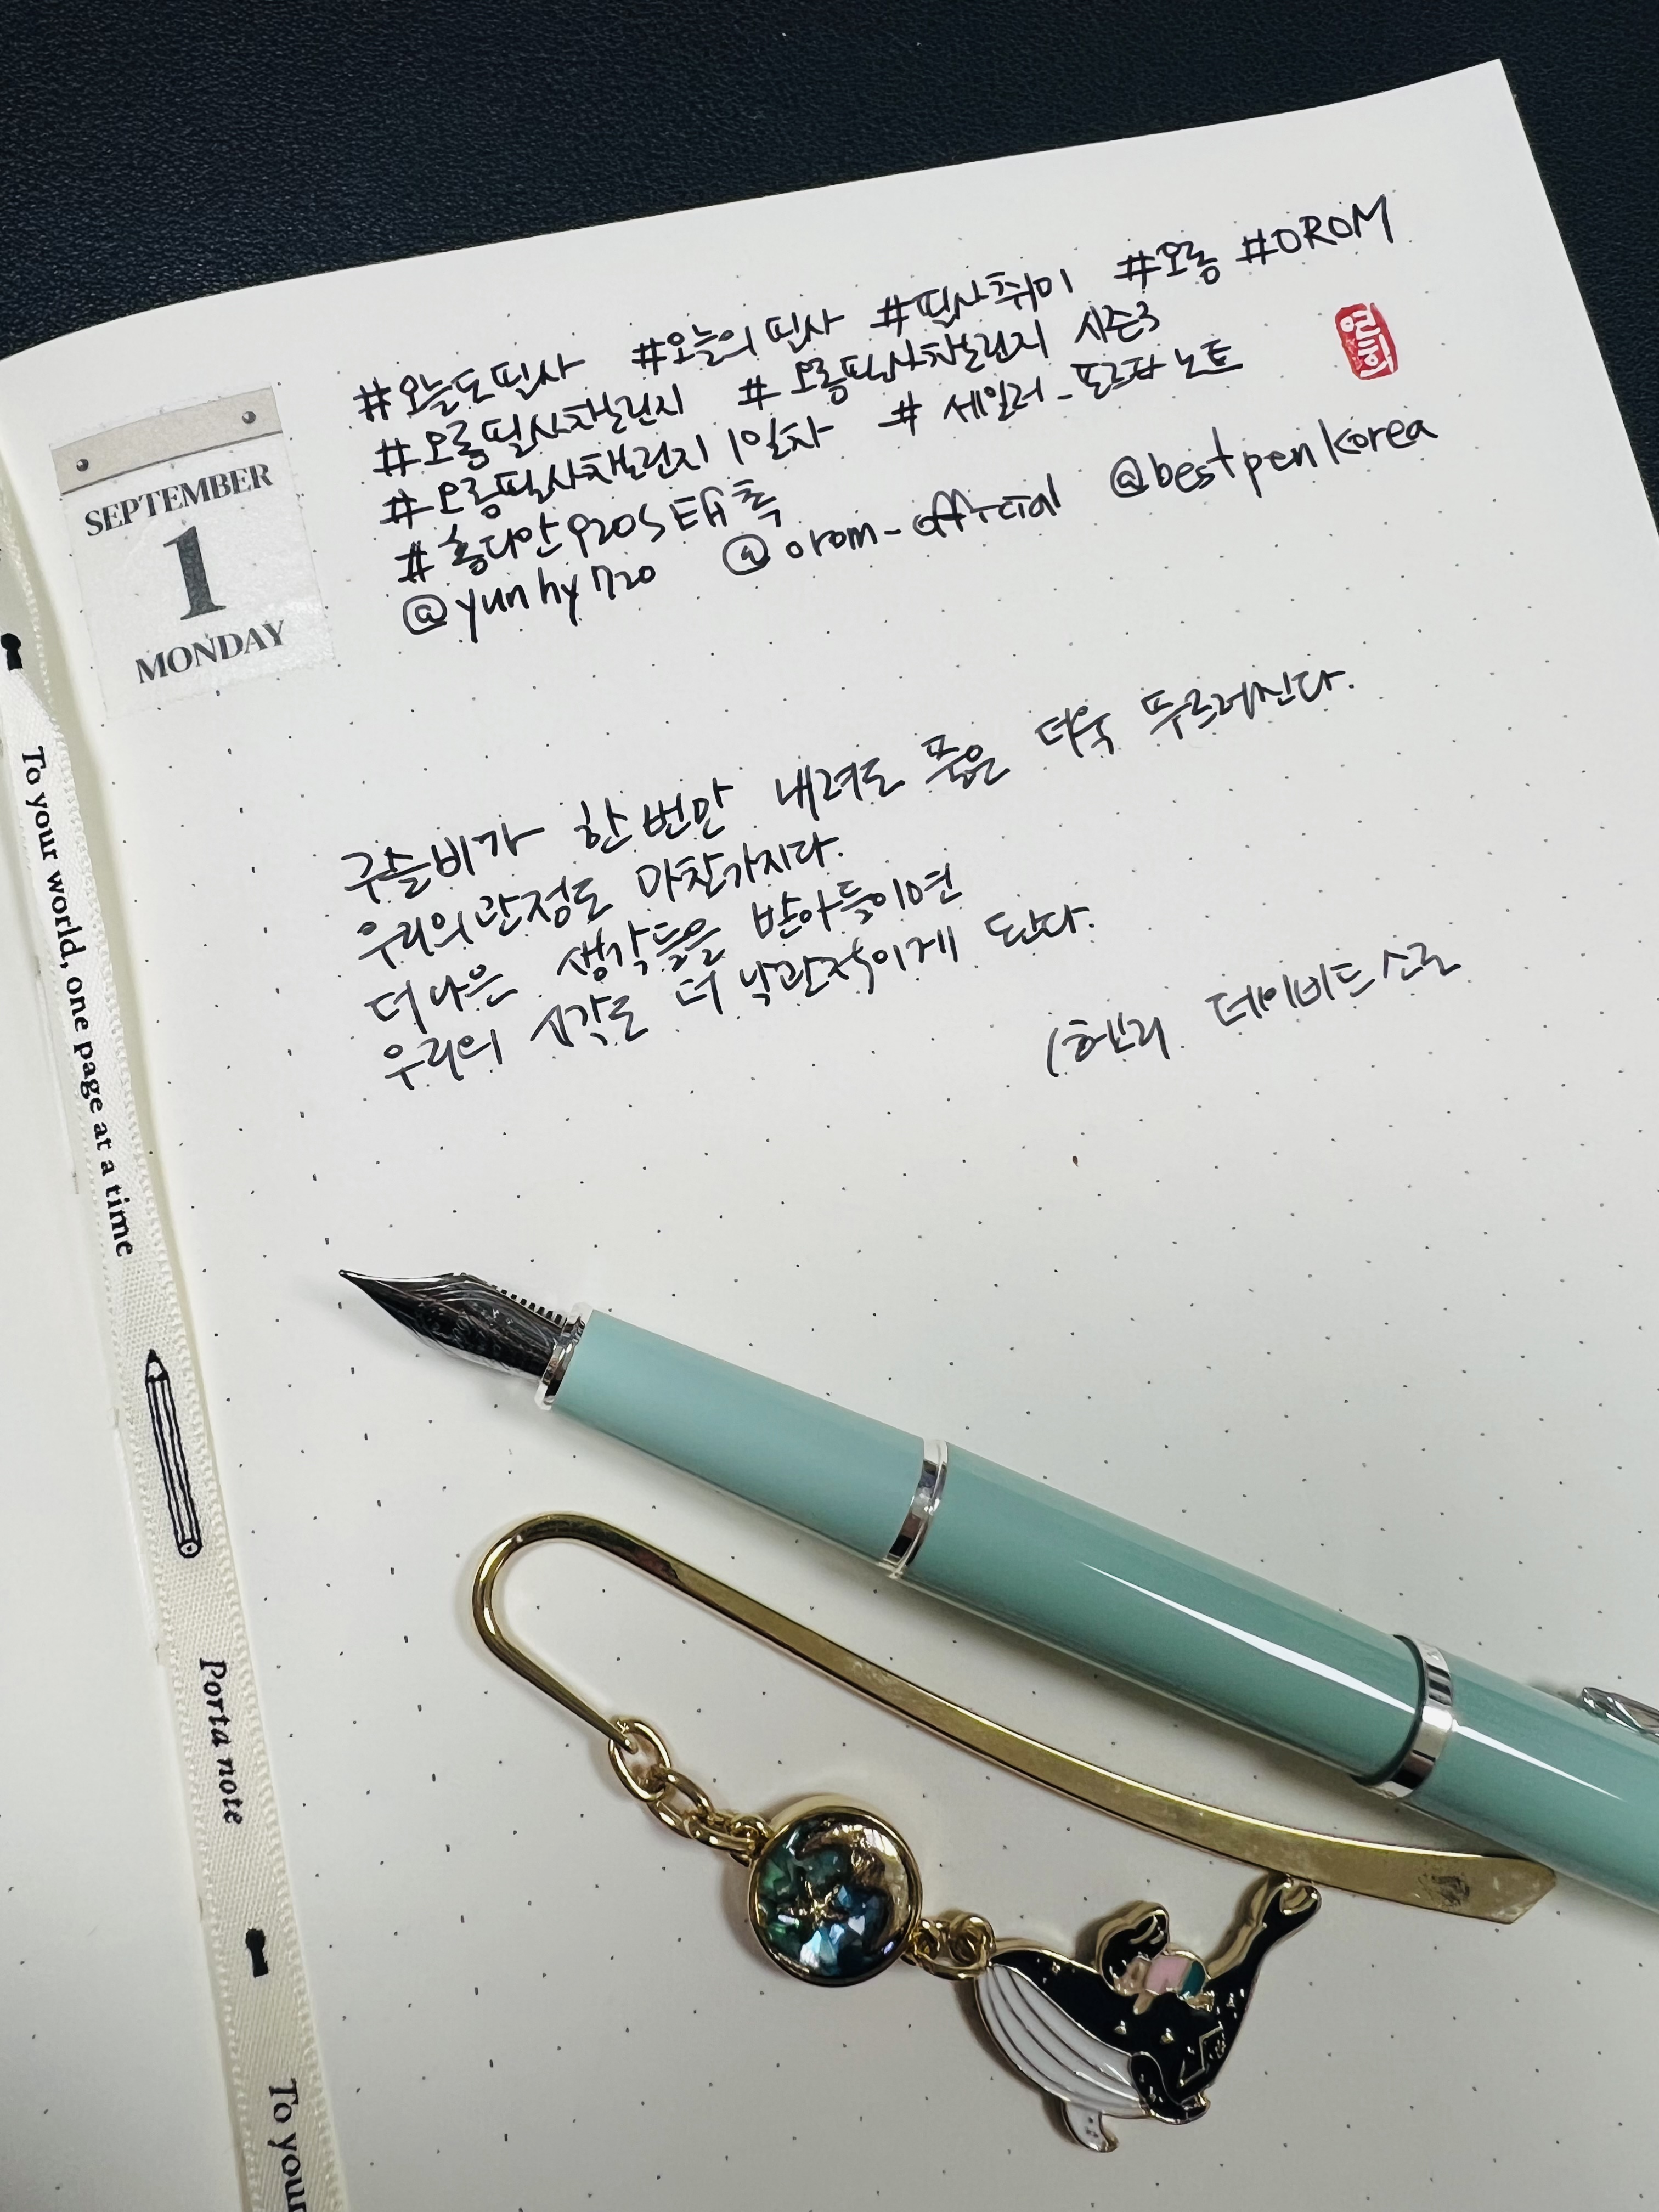 SEPTEMBER
1
MONDAY
#오늘도필사 #오늘의필사 #필사취미 #오롬 #OROM
#오롬필사챌린지 #오롬필사챌린지 시즌3
#오롬필사챌린지1일차 #세일러_포르타노트
#홍디안920S EF촉
@yunhy7720 @orom_official @bestpenkorea
구슬비가 한번만 내려도 풀은 더욱 푸르러진다.
우리의 관점도 마찬가지다.
더 나은 생각들을 받아들이면
우리의 시각도 더 낙관적이게 된다.
(헨리 데이비드 소로
To your world, one page at a time
Porta note
To your